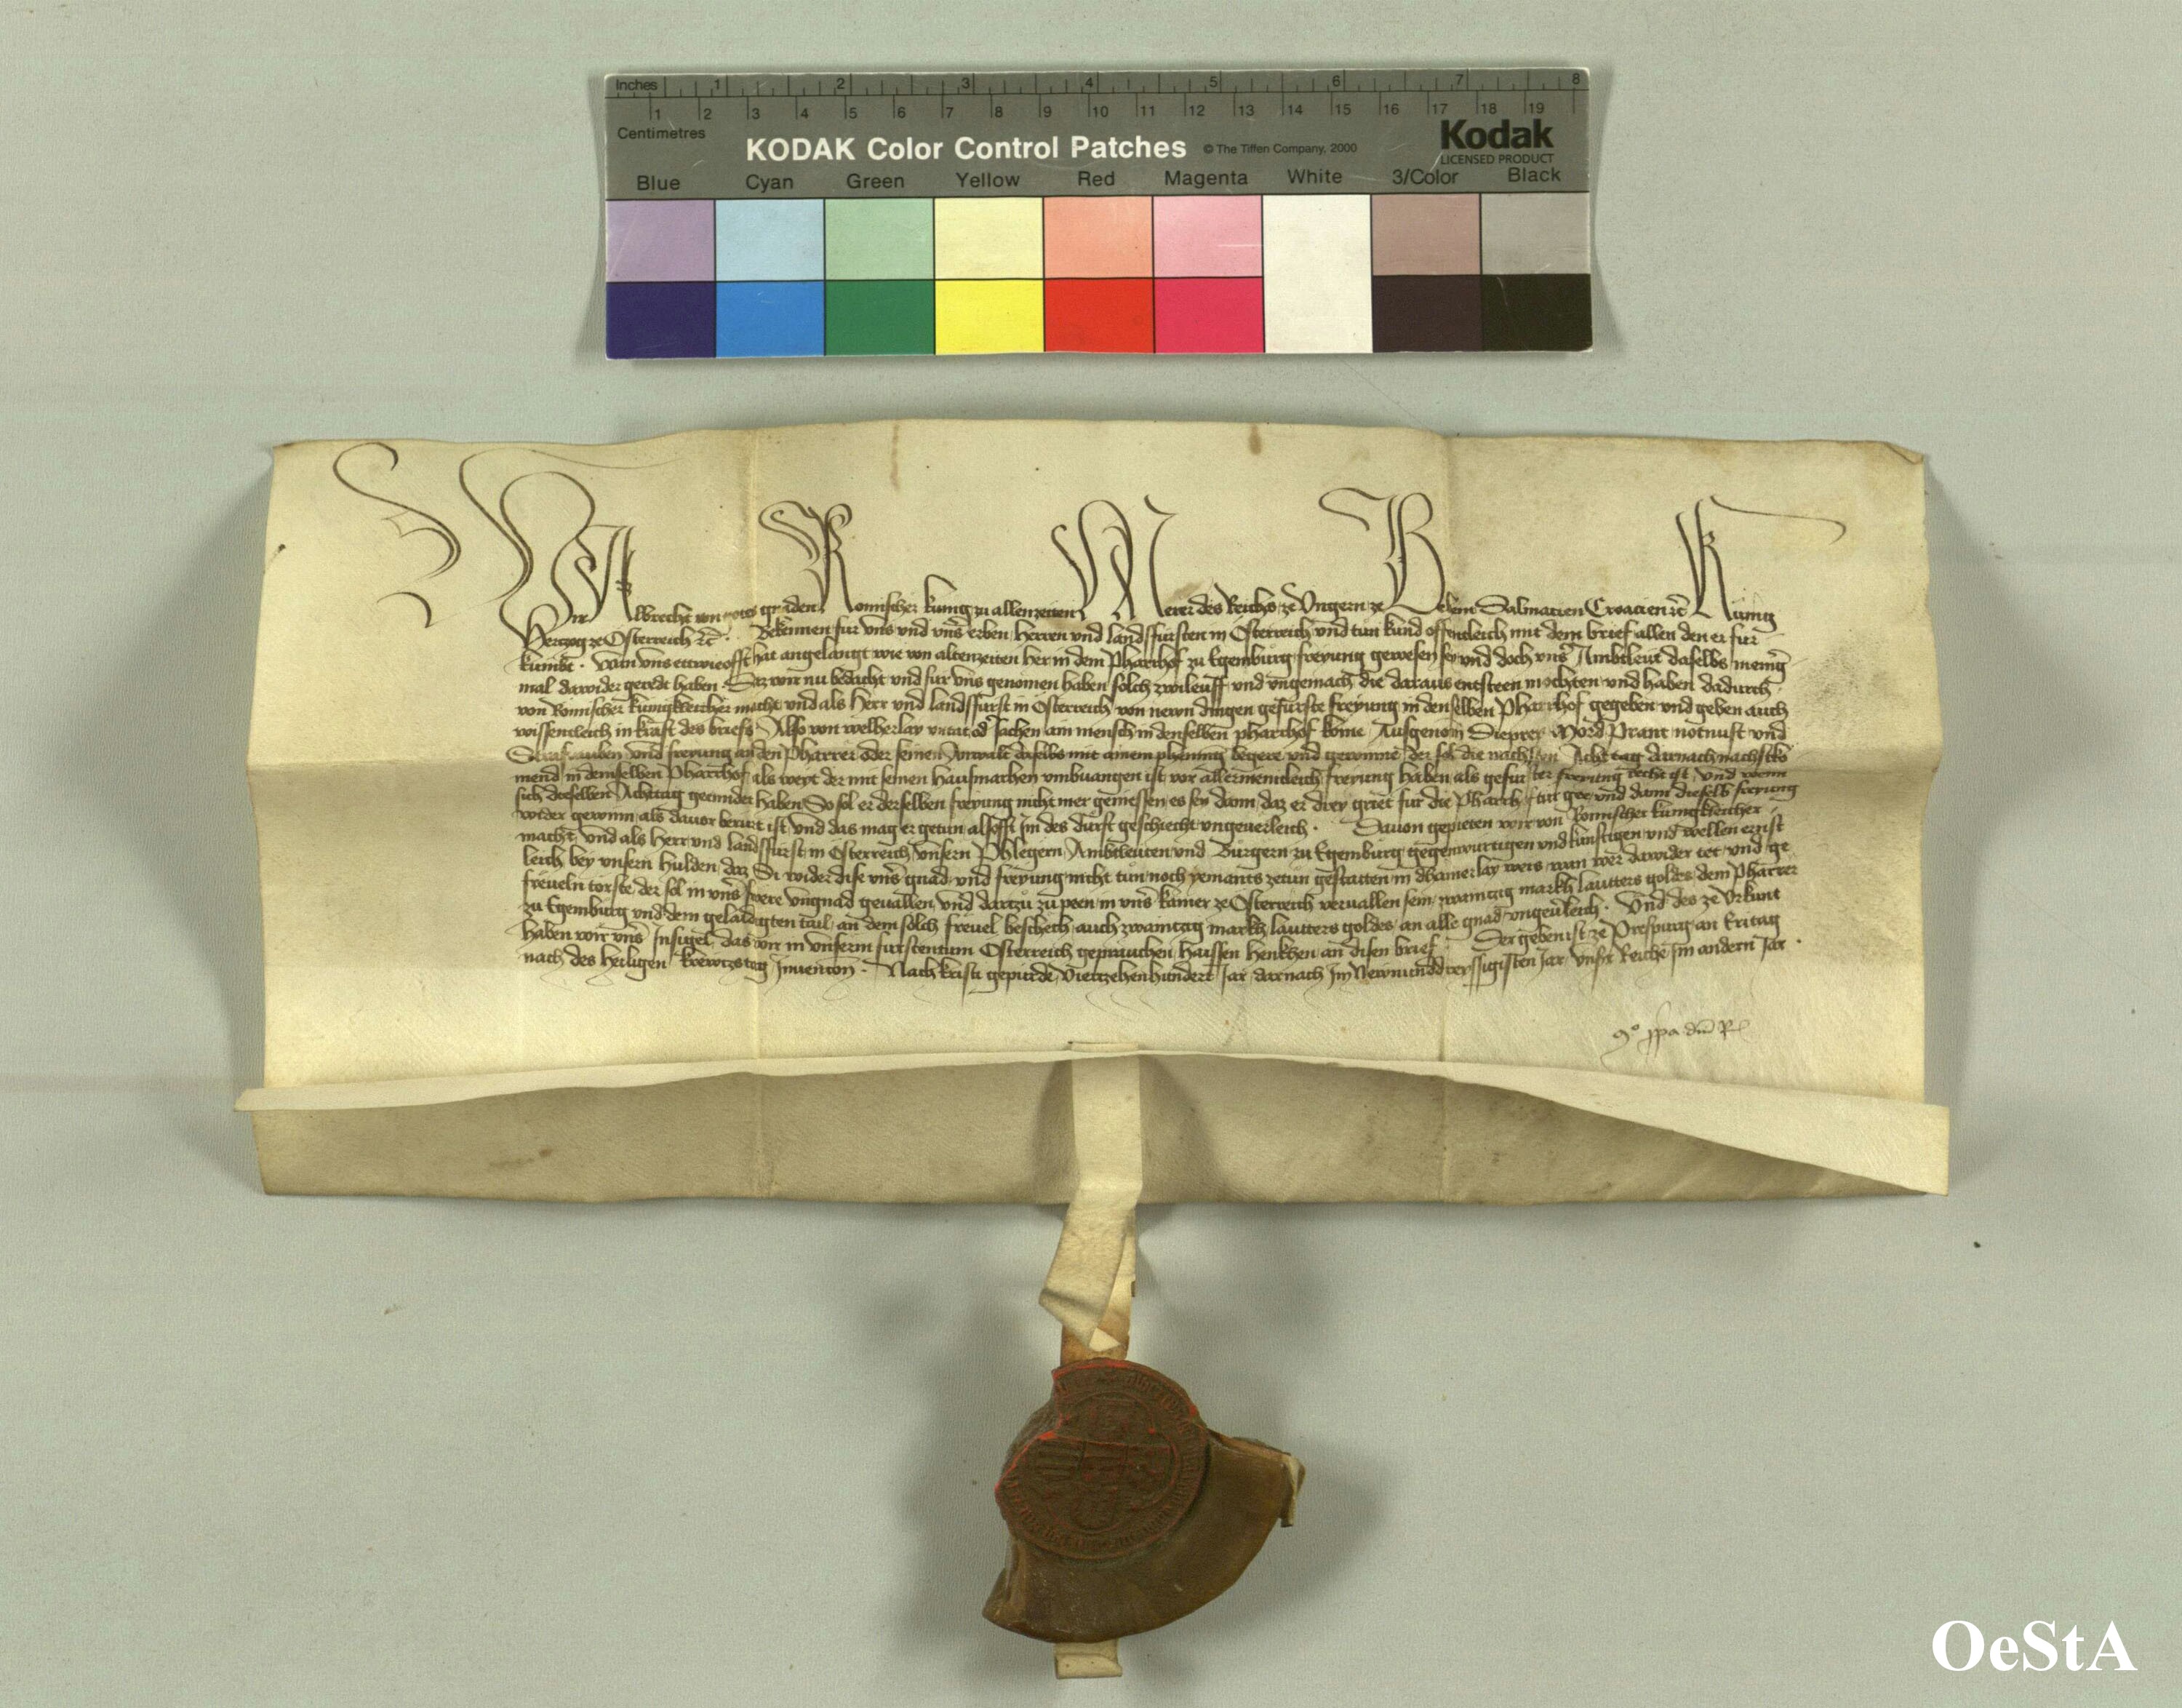 Inches 1 2 3 4 5 6 7 8
1 2 3 4 5 6 7 8 9 10 11 12 13 14 15 16 17 18 19
Centimetres
KODAK Color Control Patches © The Tiffen Company, 2000 Kodak
LICENSED PRODUCT
Blue Cyan Green Yellow Red Magenta White 3/Color Black
Wir Albrecht von gots gnaden Romischer kunig zu allenzeiten Merer des Reichs ze Ungern ze Behem Dalmacien Croacien etc Kunig
Hertzog ze Osterreich etc. Bekennen fur uns und uns erben, Herren und landsfursten in Osterreich und tun kund offenleich mit dem brief allen den er fur
kumbt. Wan uns ettwieofft hat angelangt wie von altenzeiten her in dem Pharrhof zu Egemburg freyung gewesen sey und doch uns Ambtleut daselbs menig
mal dawider geredt haben. Daz wir nu bedacht und fur uns genomen haben solch zwileuff und ungemach die daraus entsteen mochten und haben dadurch
von Romischer kunigkleicher macht und als Herr und landsfurst in Osterreich von newn dingen gefurste freyung in denselben Pharrhof gegeben und geben auch
wissentleich in kraft des briefs. Also von welherlay untat od sachen ain mensch in denselben pharrhof kome Ausgenom Dieprey Mord Prant notnuft und
Strasrauben und freyung an den Pharrer oder seinen Anwalt daselbs mit ainem phening begere und gewinne, der sol die nachsten Acht tag darnach nachstko
mend in demselben Pharrhof als weyt der mit seinen Hausmarhen umbvangen ist vor allermenikleich freyung haben, als gefurster freyung recht ist, und wenn
sich dieselben Achttag geennder haben So sol er derselben freyung nicht mer geniessen, es sey dann, daz er drey griet fur die Pharrhoftur gee und dann dieselb freyung
wider gewinn, als davor berurt ist, und das mag er getun alsofft Im des durft geschiecht ungeuerleich. Davon gepieten wir von Romischer kunigkleicher
macht, und als Herr und landsfurst in Osterreich, unsern Phlegern, Ambtleuten und Burgern zu Egemburg gegenwurtigen und kunftigen und wellen ernst
leich bey unsern Hulden, daz Si wider dise uns gnad und freyung nicht tun noch yemants zetun gestatten in dhainerlay weis, wan wer dawider tet und ge
freueln torste, der sol in uns swere ungnad geuallen, und dartzu zu peen in uns kamer ze Osterreich vervallen sein, zwaintzig markh lautters goldes, dem Pharrer
zu Egemburg und dem gelaidigten tail, an dem solch freuel beschech, auch zwaintzig markh lautters goldes, an alle gnad ungeuerleich. Und des ze Urkunt
haben wir uns Insigel, das wir in unserm furstentum Osterreich geprauchen, haissen henkhen an disen brief. Der geben ist ze Prespurg an Eritag
nach des heiligen krewtzstag Invencon. Nach kristi gepurde, Viertzehenhundert Jar, darnach Im Newnunddreyssigisten Jar, unsr Reiche Im andern Jar.
OeStA